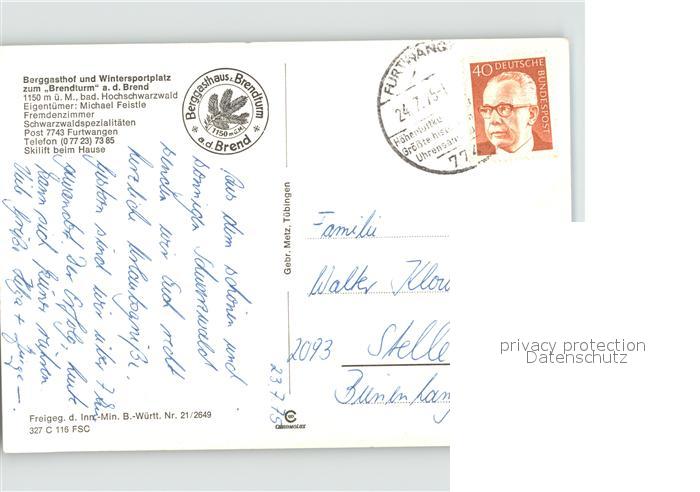 Berggasthof und Wintersportplatz
zum „Brendturm" a. d. Brend
1150 m ü. M., bad. Hochschwarzwald
Eigentümer: Michael Feistle
Fremdenzimmer
Schwarzwaldspezialitäten
Post 7743 Furtwangen
Telefon (0 77 23) 73 85
Skilift beim Hause
Berggasthaus z. Brendturm
1150 m ü. M.
a. d. Brend
FURTWANG
24.7.75
Höhenluftku
Größte his
Uhrensam
774
40 DEUTSCHE
BUNDESPOST
Aus dem schönen und
sonnigen Schwarzwald
senden wir Euch recht
herzliche Urlaubsgrüße.
Gestern sind wir über 7 Std
gewandert. Der Erfolg, heute
kann sich keiner rühren
Viele Grüße
23.7.75
Gebr. Metz, Tübingen
Familie
Walter
2093 Stelle
Freigeg. d. Inn.-Min. B.-Württ. Nr. 21/2649
327 C 116 FSC
CHROMOLUX
privacy protection
Datenschutz